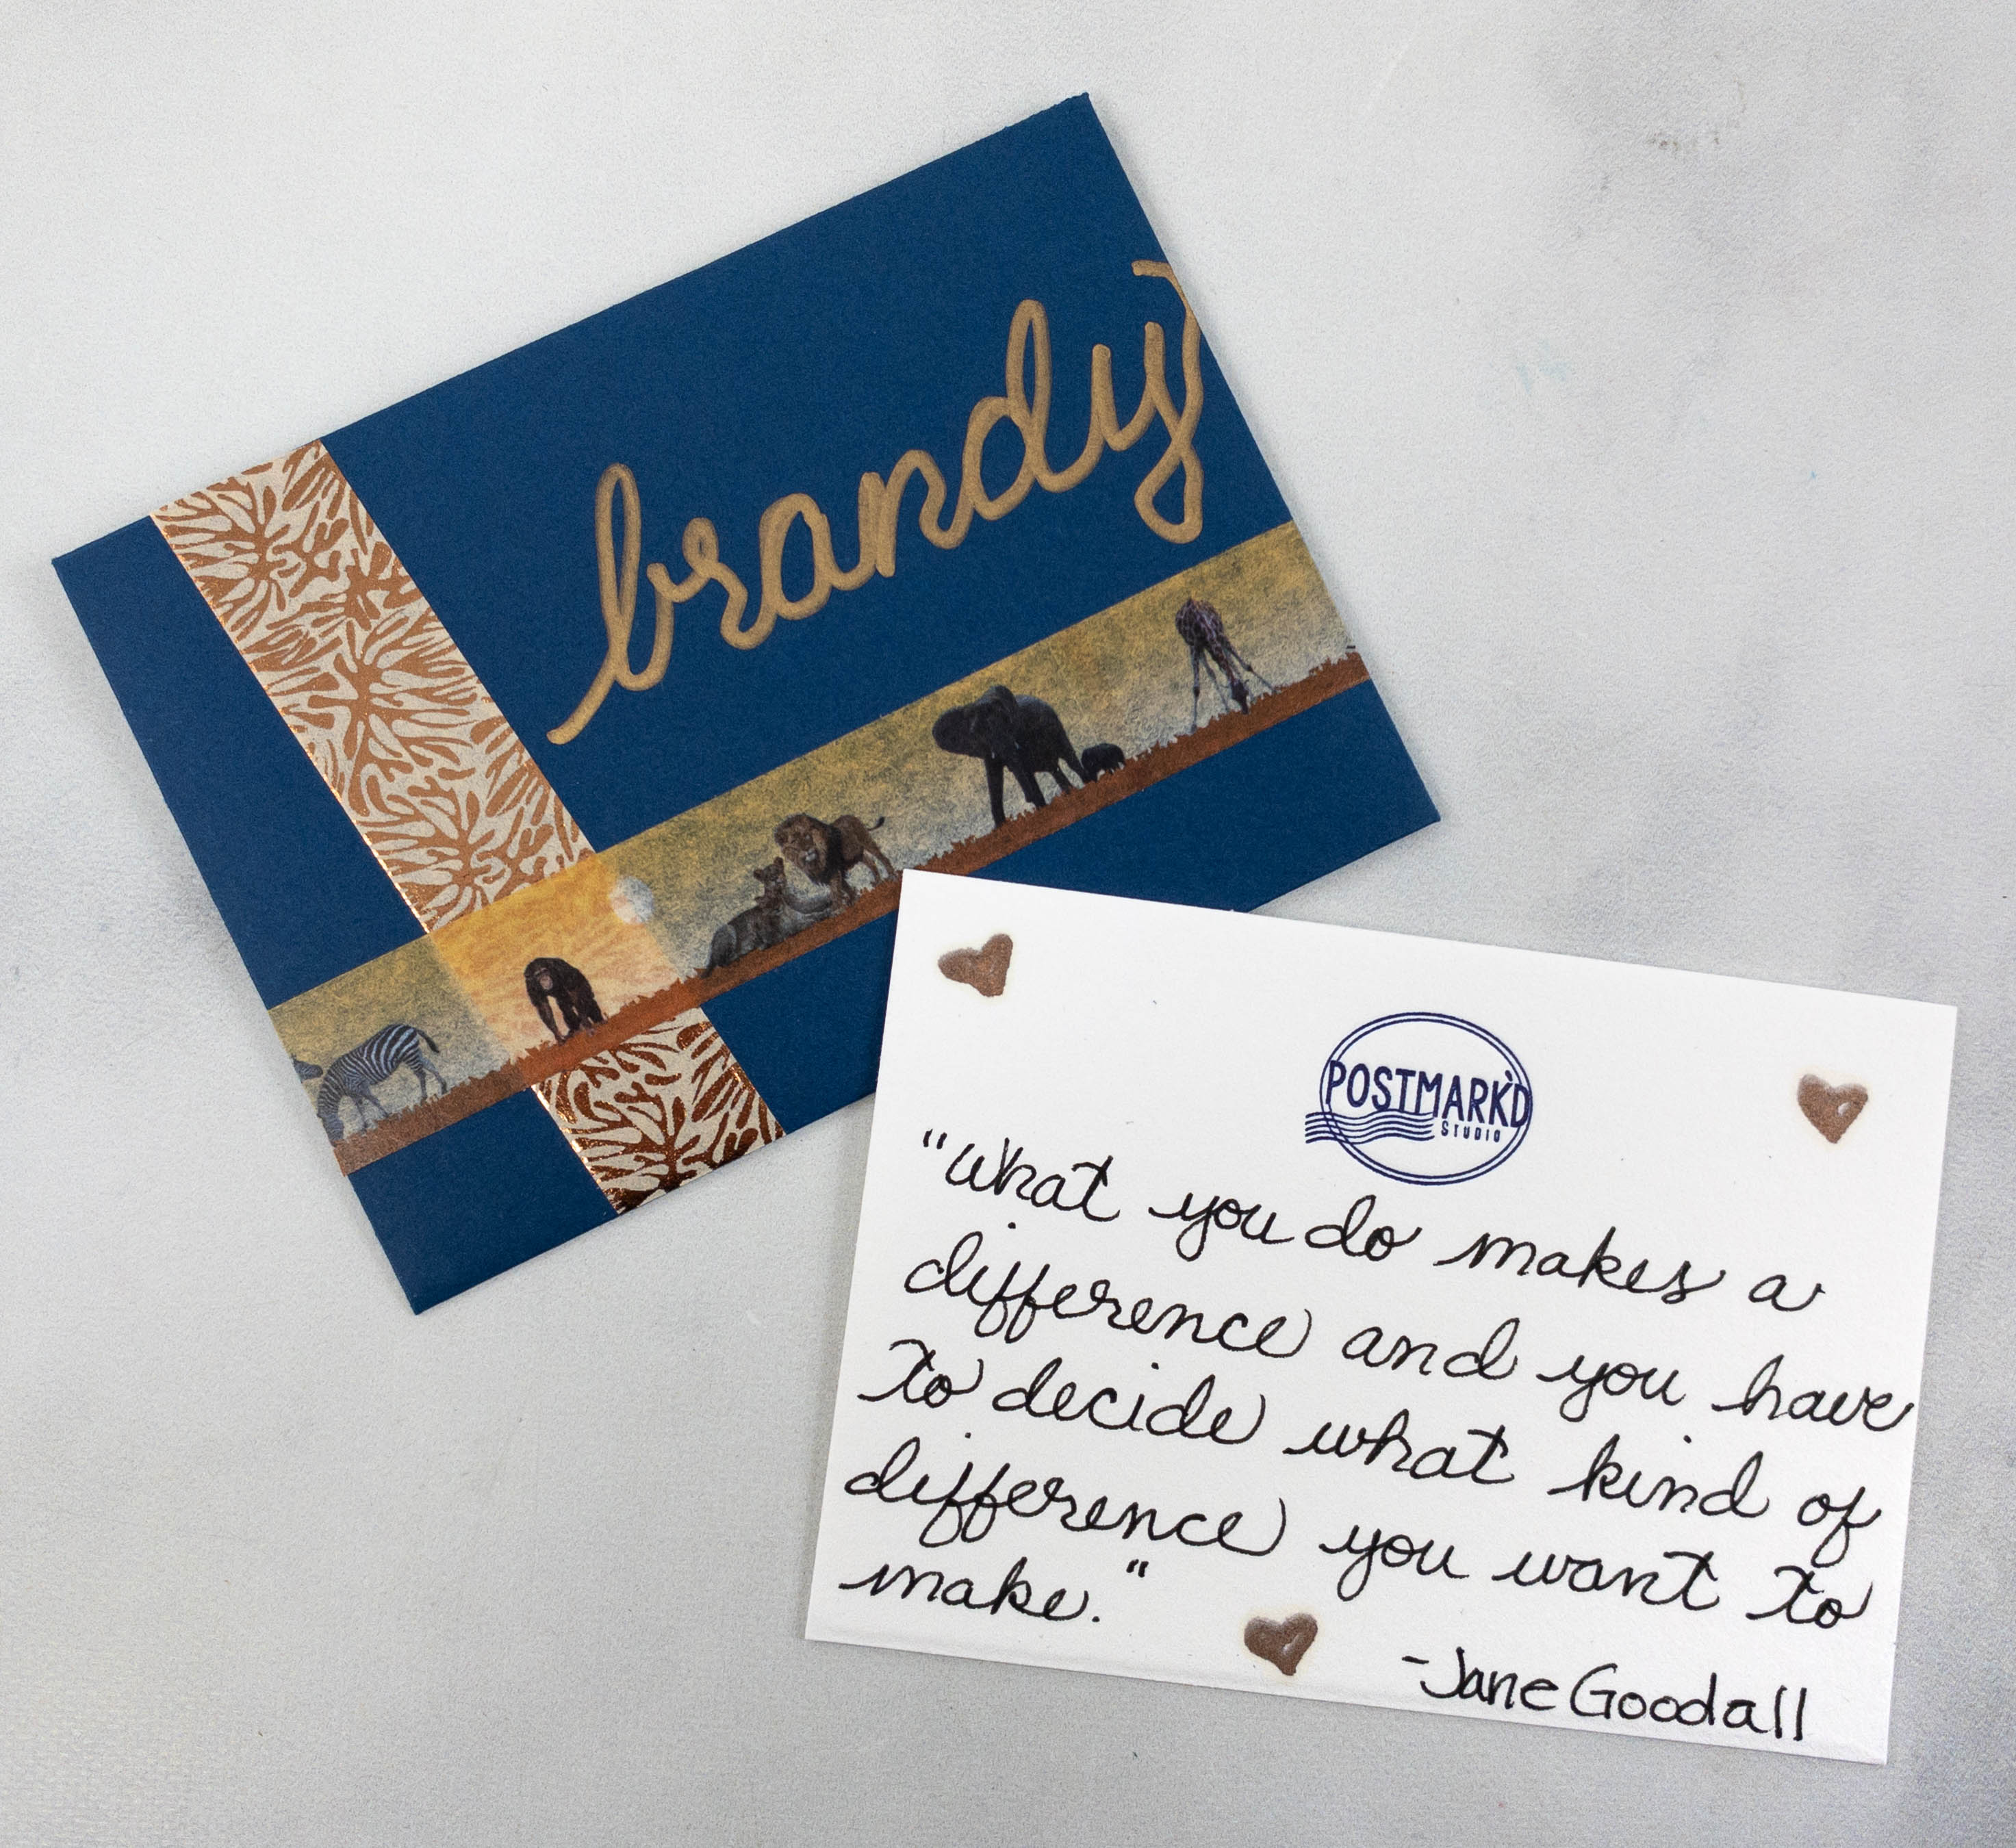 brandy
POSTMARK'D
STUDIO
"What you do makes a
difference and you have
to decide what kind of
difference you want to
make."
-Jane Goodall